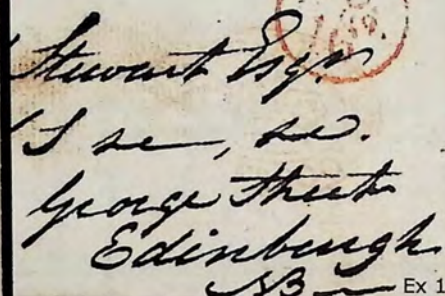 Stewart Esqr.
George Street
Edinburgh
NB
Ex 1